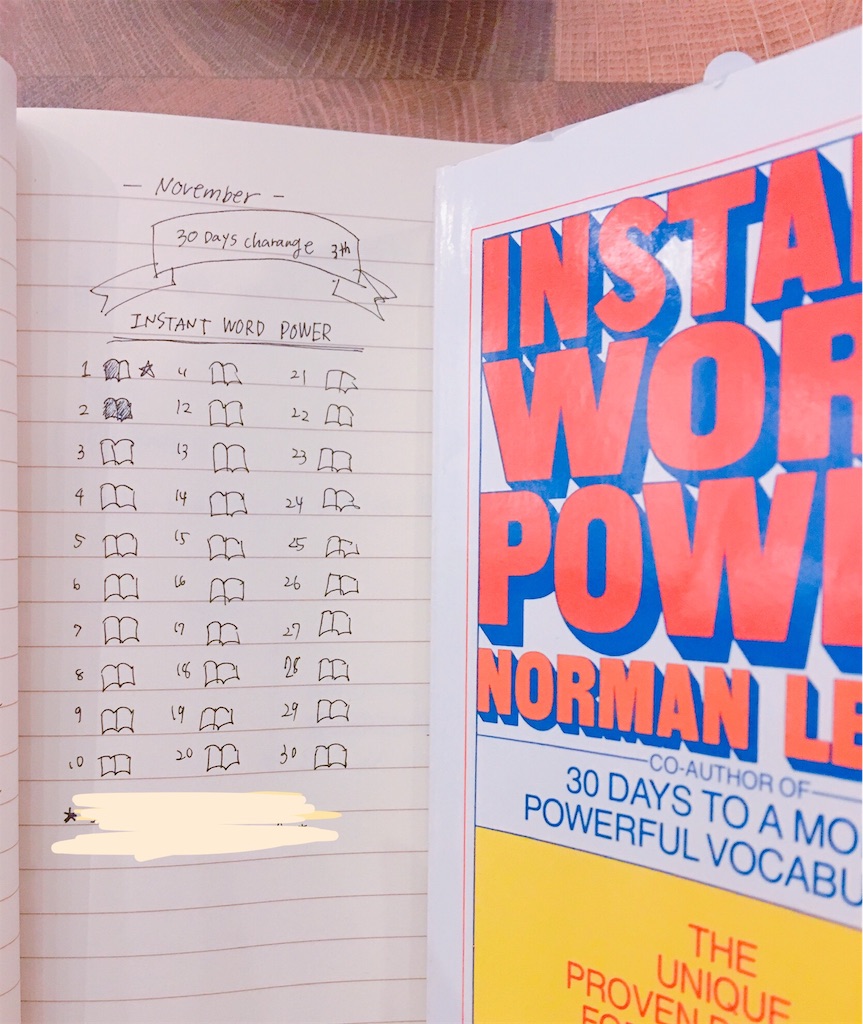 — November —
30 Days charange 3th
INSTANT WORD POWER
1 ☆ 11 21
2 12 22
3 13 23
4 14 24
5 15 25
6 16 26
7 17 27
8 18 28
9 19 29
10 20 30
★
INSTA
WOR
POWE
NORMAN LE
CO-AUTHOR OF
30 DAYS TO A MO
POWERFUL VOCABU
THE
UNIQUE
PROVEN